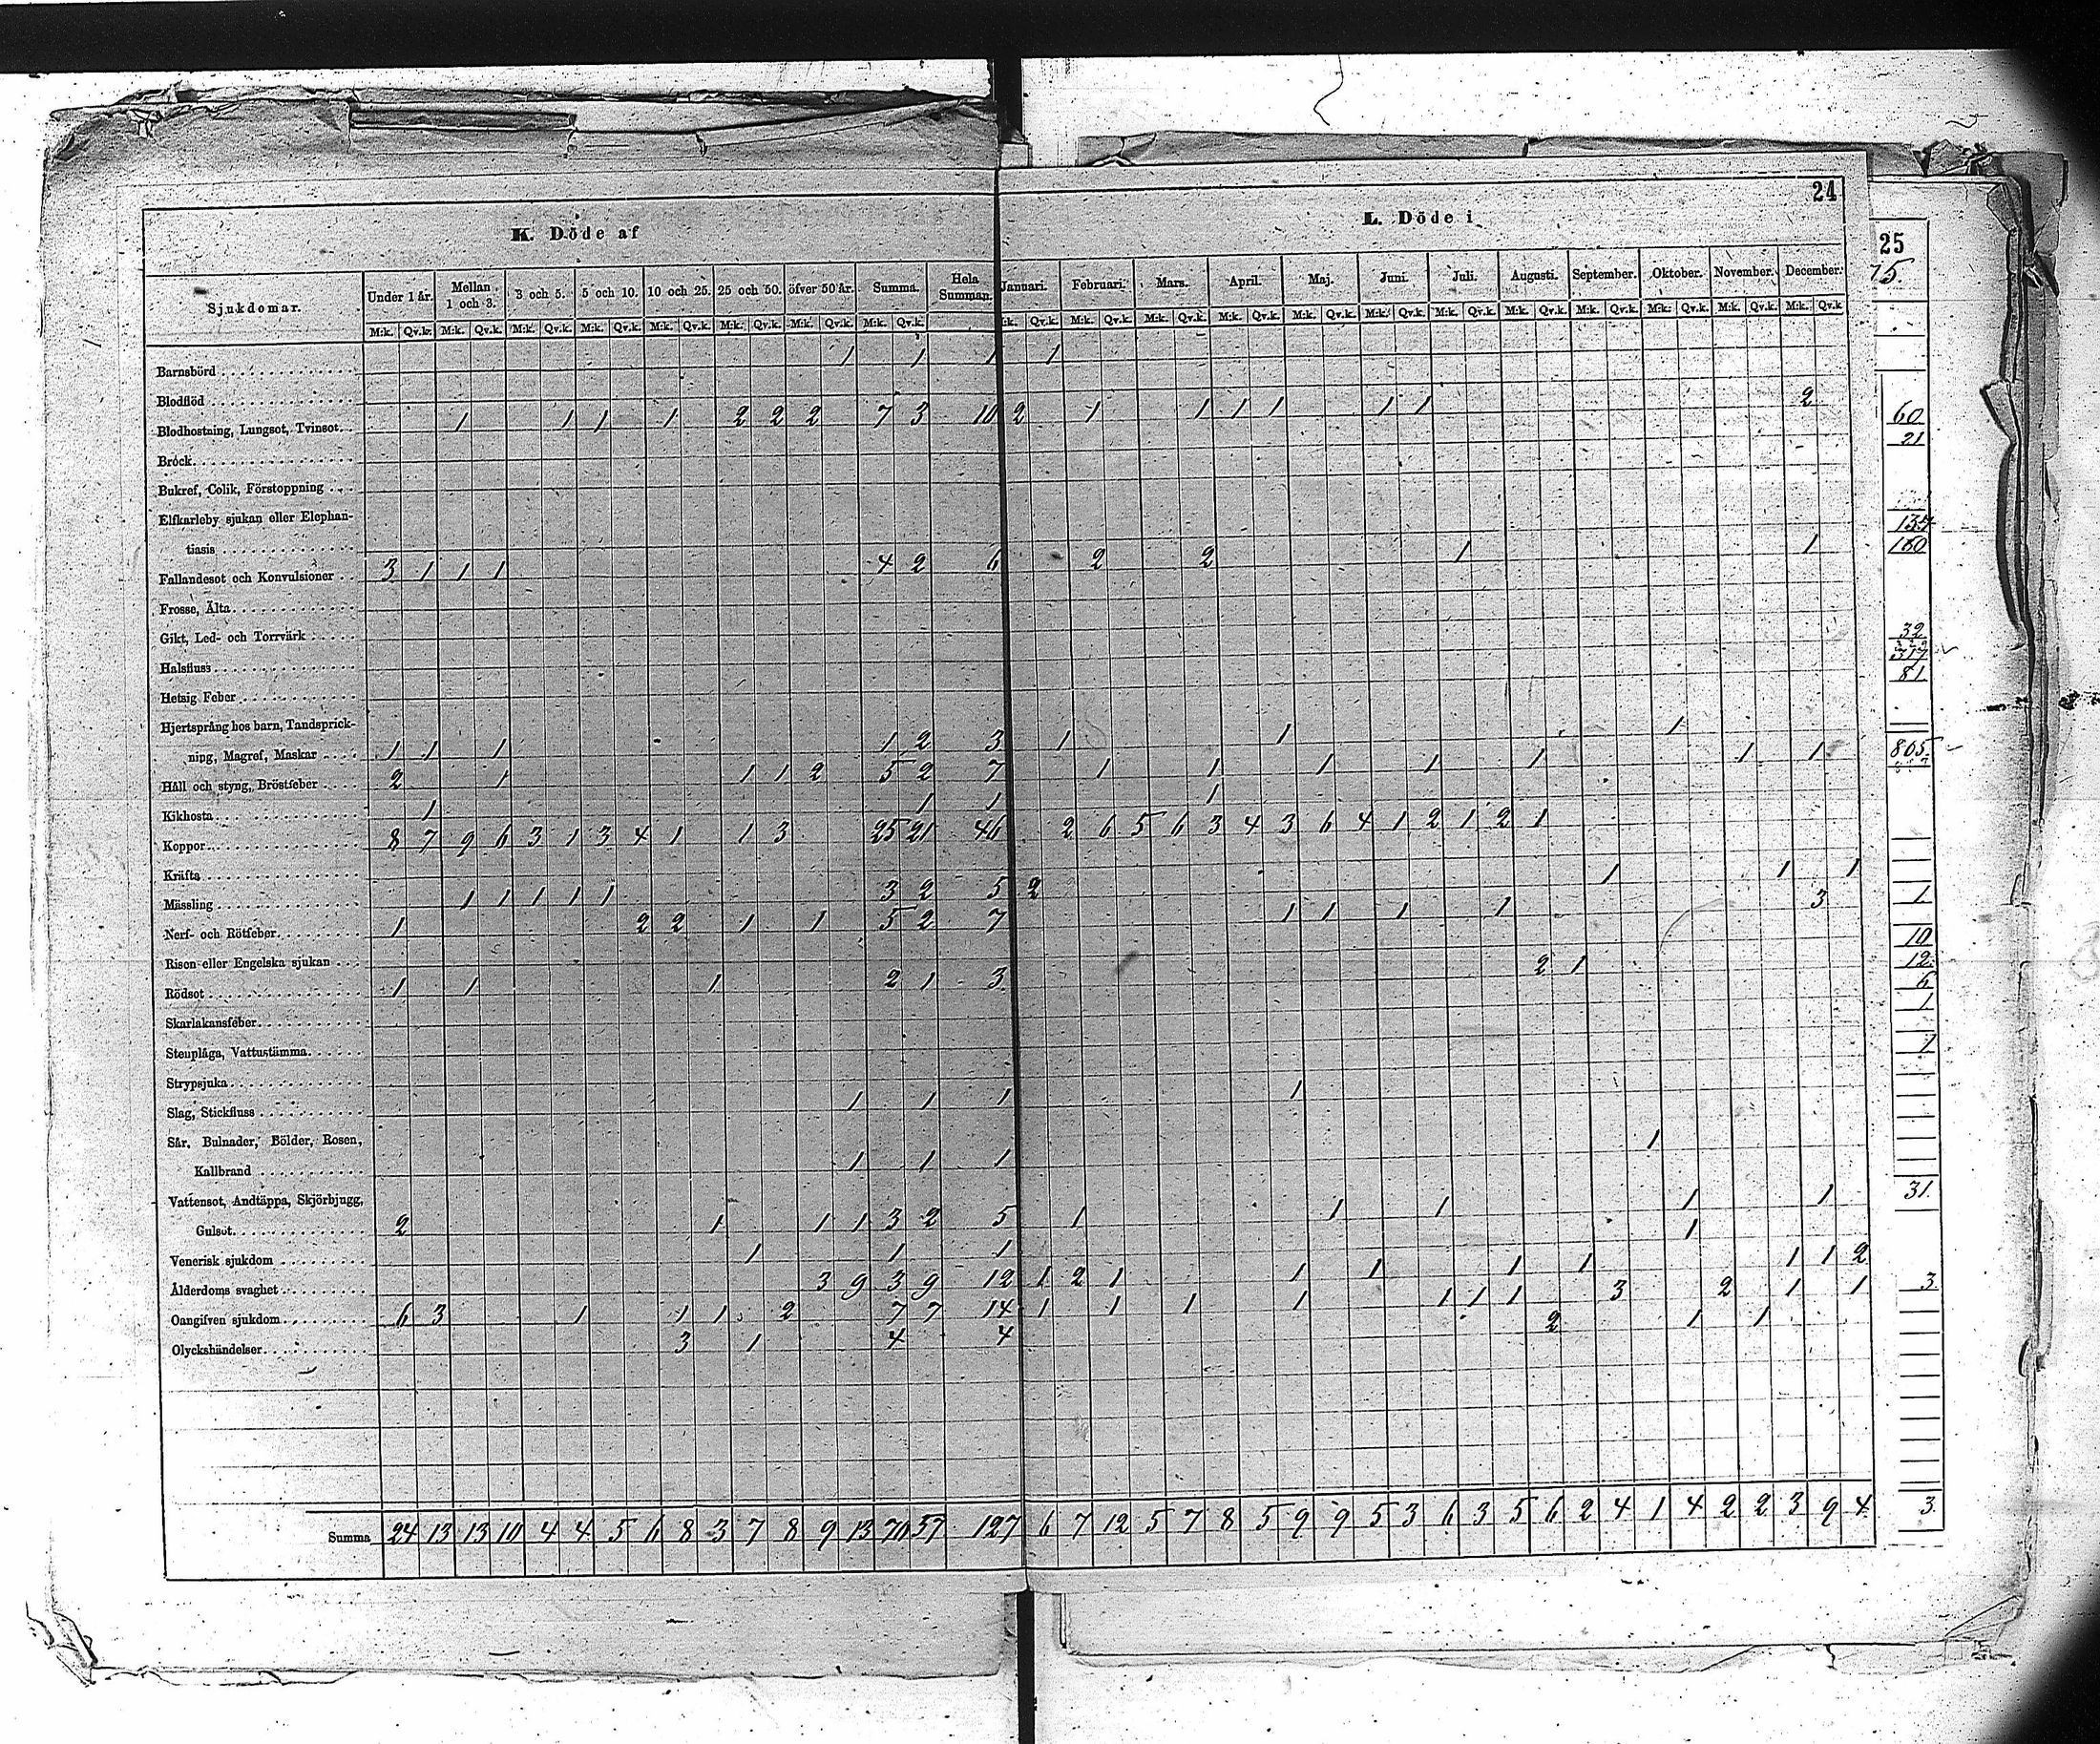 24
K. Döde af L. Döde i
25
75.
Sjukdomar. Under 1 år. Mellan 1 och 3. 3 och 5. 5 och 10. 10 och 25. 25 och 50. öfver 50 år. Summa. Hela Summan. Januari. Februari. Mars. April. Maj. Juni. Juli. Augusti. September. Oktober. November. December.
M:k. Qv.k. M:k. Qv.k. M:k. Qv.k. M:k. Qv.k. M:k. Qv.k. M:k. Qv.k. M:k. Qv.k. M:k. Qv.k. M:k. Qv.k. M:k. Qv.k. M:k. Qv.k. M:k. Qv.k. M:k. Qv.k. M:k. Qv.k. M:k. Qv.k. M:k. Qv.k. M:k. Qv.k. M:k. Qv.k. M:k. Qv.k. M:k. Qv.k.
Barnsbörd 1 1 1 1
Blodflöd
Blodhostning, Lungsot, Tvinsot 1 1 1 1 2 2 2 7 3 10 2 1 1 1 1 1 1 2
Bröck
Bukref, Colik, Förstoppning
Elfkarleby sjukan eller Elephan-
tiasis
Fallandesot och Konvulsioner 3 1 1 1 4 2 6 2 2 1 1
Frossa, Älta
Gikt, Led- och Torrvärk
Halsfluss
Hetsig Feber
Hjertsprång hos barn, Tandsprick-
ning, Magref, Maskar 1 1 1 1 2 3 1 1 1
Håll och styng, Bröstfeber 2 1 1 1 2 5 2 7 1 1 1 1 1 1 1
Kikhosta 1 1 1 1
Koppor 8 7 9 6 3 1 3 4 1 1 3 25 21 46 2 6 5 6 3 4 3 6 4 1 2 1 2 1
Kräfta
Mässling 1 1 1 1 1 3 2 5 2 1 1 1
Nerf- och Rötfeber 1 2 2 1 1 5 2 7 1 1 1 1 3
Risen eller Engelska sjukan
Rödsot 1 1 1 2 1 3 2 1
Skarlakansfeber
Stenplåga, Vattustämma
Strypsjuka
Slag, Stickfluss 1 1 1 1
Sår, Bulnader, Bölder, Rosen,
Kallbrand 1 1 1 1
Vattensot, Andtäppa, Skjörbjugg,
Gulsot 2 1 1 1 3 2 5 1 1 1 1 1
Venerisk sjukdom 1 1 1 1
Ålderdoms svaghet 3 9 3 9 12 1 2 1 1 1 1 1 1 1 2
Oangifven sjukdom 6 3 1 1 1 2 7 7 14 1 1 1 1 1 1 1 3 2 1 1
Olyckshändelser 3 1 4 4 2 1 1
Summa 24 13 13 10 4 4 5 6 8 3 7 8 9 13 70 57 127 6 7 12 5 7 8 5 9 9 5 3 6 3 5 6 2 4 1 4 2 2 3 9 4
60
21
137
180
32
317
81
805
1
10
12
6
1
1
31.
3
3